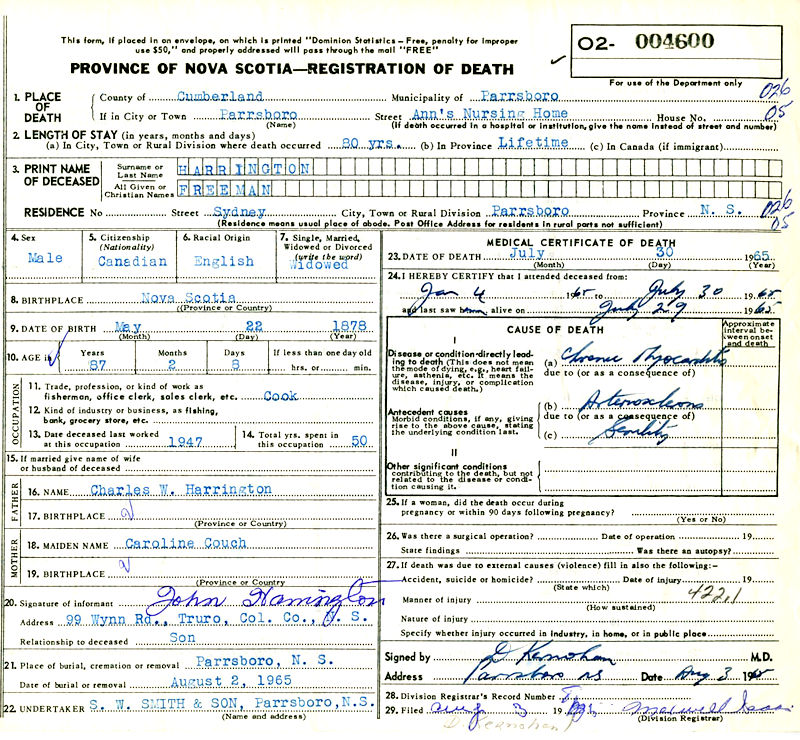 This form, if placed in an envelope, on which is printed "Dominion Statistics – Free, penalty for improper
use $50," and properly addressed will pass through the mail "FREE"
O2- 004600
PROVINCE OF NOVA SCOTIA—REGISTRATION OF DEATH
For use of the Department only
1. PLACE OF DEATH County of Cumberland Municipality of Parrsboro 026
If in City or Town Parrsboro Street Ann's Nursing Home House No. 05
(Name) (If death occurred in a hospital or institution, give the name instead of street and number)
2. LENGTH OF STAY (in years, months and days)
(a) In City, Town or Rural Division where death occurred 80 yrs. (b) In Province Lifetime (c) In Canada (if immigrant)
3. PRINT NAME OF DECEASED Surname or Last Name HARRINGTON
All Given or Christian Names FREEMAN
RESIDENCE No Street Sydney City, Town or Rural Division Parrsboro Province N. S. 026
05
(Residence means usual place of abode. Post Office Address for residents in rural parts not sufficient)
4. Sex Male
5. Citizenship (Nationality) Canadian
6. Racial Origin English
7. Single, Married, Widowed or Divorced (write the word) Widowed
8. BIRTHPLACE Nova Scotia
(Province or Country)
9. DATE OF BIRTH May 22 1878
(Month) (Day) (Year)
10. AGE is Years Months Days If less than one day old
87 2 8 hrs. or min.
OCCUPATION
11. Trade, profession, or kind of work as
fisherman, office clerk, sales clerk, etc. Cook
12. Kind of industry or business, as fishing,
bank, grocery store, etc.
13. Date deceased last worked at this occupation 1947
14. Total yrs. spent in this occupation 50
15. If married give name of wife
or husband of deceased
FATHER
16. NAME Charles W. Harrington
17. BIRTHPLACE
(Province or Country)
MOTHER
18. MAIDEN NAME Caroline Couch
19. BIRTHPLACE
(Province or Country)
20. Signature of informant John Harrington
Address 99 Wynn Rd., Truro, Col. Co., N. S.
Relationship to deceased Son
21. Place of burial, cremation or removal Parrsboro, N. S.
Date of burial or removal August 2, 1965
22. UNDERTAKER S. W. SMITH & SON, Parrsboro, N.S.
(Name and address)
MEDICAL CERTIFICATE OF DEATH
23. DATE OF DEATH July 30 1965
(Month) (Day) (Year)
24. I HEREBY CERTIFY that I attended deceased from:
Jan 4 1965 to July 30 1965
and last saw him alive on July 29 1965
CAUSE OF DEATH
Approximate interval between onset and death
I
Disease or condition directly leading to death (This does not mean
the mode of dying, e.g., heart failure, asthenia, etc. It means the
disease, injury, or complication
which caused death.)
(a) Chronic Myocarditis
due to (or as a consequence of)
Antecedent causes
Morbid conditions, if any, giving
rise to the above cause, stating
the underlying condition last.
(b)
due to (or as a consequence of)
(c) Senility
II
Other significant conditions
contributing to the death, but not
related to the disease or condition
causing it.
25. If a woman, did the death occur during
pregnancy or within 90 days following pregnancy?
(Yes or No)
26. Was there a surgical operation? Date of operation 19
State findings Was there an autopsy?
27. If death was due to external causes (violence) fill in also the following:-
Accident, suicide or homicide? Date of injury 19
(State which)
Manner of injury 422.1
(How sustained)
Nature of injury
Specify whether injury occurred in industry, in home, or in public place
Signed by D Kernohan M.D.
Address Parrsboro NS Date Aug 3 1965
28. Division Registrar's Record Number
29. Filed Aug 3 19
(Division Registrar)
D. Kernohan